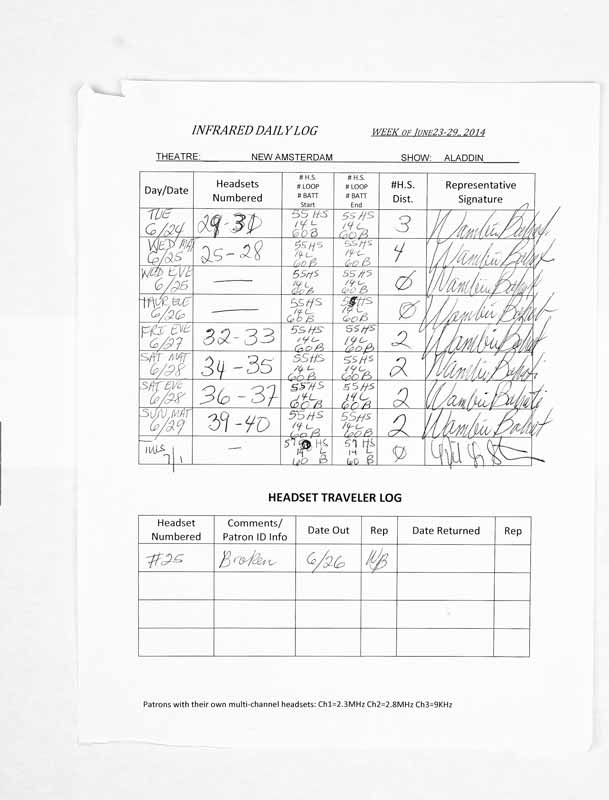 INFRARED DAILY LOG WEEK OF JUNE23-29, 2014
THEATRE: NEW AMSTERDAM SHOW: ALADDIN
Day/Date Headsets Numbered # H.S. # LOOP # BATT Start # H.S. # LOOP # BATT End #H.S. Dist. Representative Signature
TUE 6/24 29-31 55 HS 14 L 60 B 55 HS 14 L 60 B 3
WED MAT 6/25 25-28 55HS 14L 60B 55HS 14L 60B 4
WED EVE 6/25 — 55HS 14L 60B 55HS 14L 60B Ø
THUR EVE 6/26 — 55HS 14L 60B 55HS 14L 60B Ø
FRI EVE 6/27 32-33 55HS 14L 60B 55HS 14L 60B 2
SAT MAT 6/28 34-35 55HS 14L 60B 55HS 14L 60B 2
SAT EVE 6/28 36-37 55HS 14L 60B 55HS 14L 60B 2
SUN MAT 6/29 39-40 55HS 14L 60B 55HS 14L 60B 2
7/1 — HS 14 L 60 B 59 HS 14 L 60 B Ø
HEADSET TRAVELER LOG
Headset Numbered Comments/ Patron ID Info Date Out Rep Date Returned Rep
#25 Broken 6/26 WB
Patrons with their own multi-channel headsets: Ch1=2.3MHz Ch2=2.8MHz Ch3=9KHz